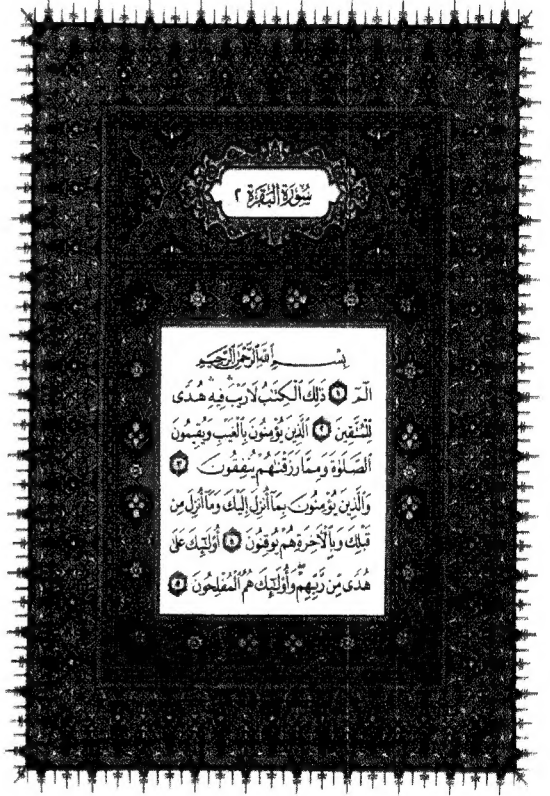 سُورَةُ الْبَقَرَةِ ٢
بِسْمِ اللَّهِ الرَّحْمَٰنِ الرَّحِيمِ
الٓمٓ ١ ذَٰلِكَ الْكِتَٰبُ لَا رَيْبَ ۛ فِيهِ ۛ هُدًى
لِّلْمُتَّقِينَ ٢ الَّذِينَ يُؤْمِنُونَ بِالْغَيْبِ وَيُقِيمُونَ
الصَّلَوٰةَ وَمِمَّا رَزَقْنَٰهُمْ يُنفِقُونَ ٣
وَالَّذِينَ يُؤْمِنُونَ بِمَآ أُنزِلَ إِلَيْكَ وَمَآ أُنزِلَ مِن
قَبْلِكَ وَبِالْءَاخِرَةِ هُمْ يُوقِنُونَ ٤ أُو۟لَٰٓئِكَ عَلَىٰ
هُدًى مِّن رَّبِّهِمْ ۖ وَأُو۟لَٰٓئِكَ هُمُ الْمُفْلِحُونَ ٥